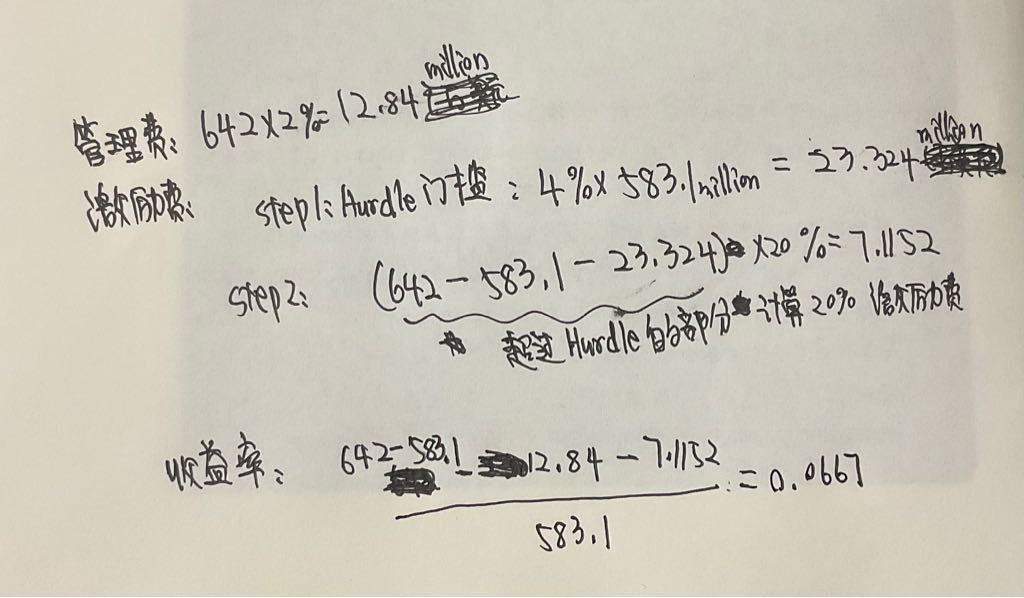 million
管理费: 642×2%=12.84
million
激励费: step1: Hurdle 门槛: 4%×583.1million = 23.324
step2: (642-583.1-23.324)×20%=7.1152
超过Hurdle的部分计算20% 激励费
收益率: 642-583.1-12.84-7.1152
=0.0667
583.1